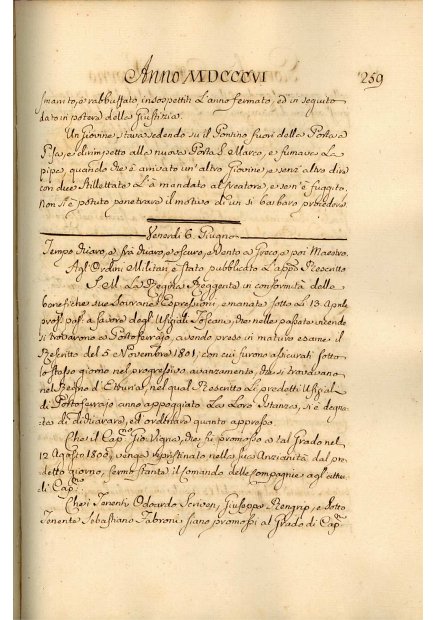 Anno MDCCCVI
259
smarrito, e rabbuffato, insospettiti l'anno fermato, ed in seguito
dato in potere della Giustizia.
Un Giovine stava sedendo su il Pontino fuori della Porta a
Pisa, e dirimpetto alla nuova Porta S. Marco, e fumava la
pipa, quando che è arrivato un'altro Giovine, e senz'altro dire
con due Stilettate l'à mandato al Creatore, e se n'è fuggito.
Non si è potuto penetrare il motivo di un sì barbaro procedere
Venerdì 6. Giugno
Tempo chiaro, e frà chiaro, e oscuro, e Vento a Greco, e poi Maestro.
Agl'Ordini Militari è stato pubblicato l'app.° Rescritto
S. M. la Regina Reggente in conformità delle
benefiche sue Sovrane Espressioni, emanate sotto li 13. Aprile
pros.° pas.° a favore degl'Ufiziali Toscani, che nelle passate vicende
si trovavono a Portoferrajo, avendo preso in maturo esame il
Rescritto del 5. Novembre 1801, con cui furono assicurati sotto
lo stesso giorno nel progressivo avanzamento, che si trovavano
nel Regno d'Etruria, nel qual Rescritto li predetti Ufiziali
di Portoferrajo anno appoggiata la loro Istanza, si è degnata
di dichiarare, ed ordinare quanto appresso.
Che il Cap.no Gio. Vigna, che fu promosso a tal Grado nel
12 Agosto 180, venga ripristinato nella sua Anzianità dal predetto
giorno, fermo stante il Comando delle Compagnie agl'attuali
di Cap.no
Che i Tenenti Odoardo Giuseppe e Sotto
Tenente Sebastiano Fabroni siano promossi al Grado di Cap.ni